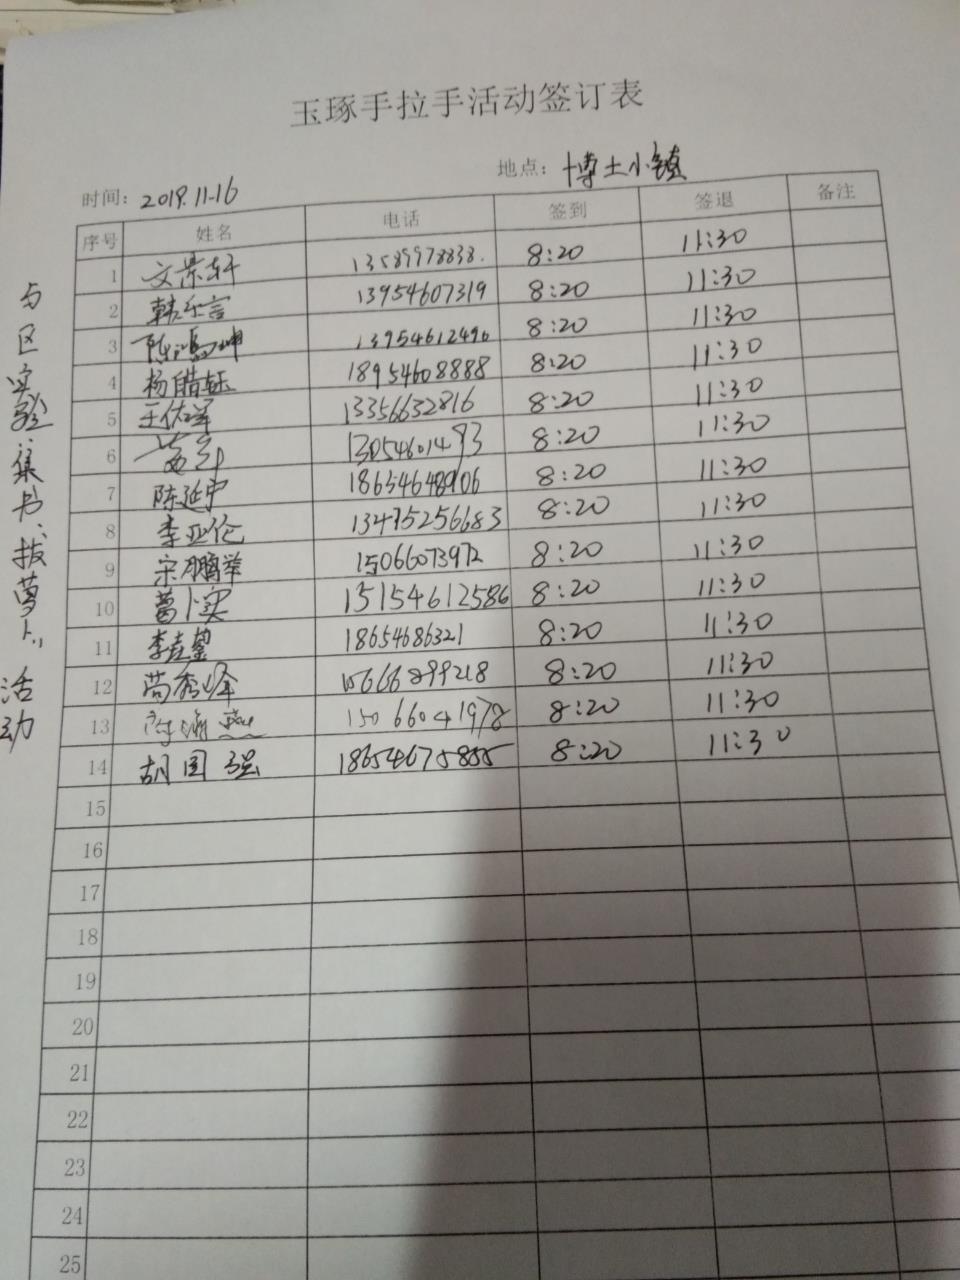 玉琢手拉手活动签订表
时间: 2019.11-16 地点: 博士小镇
序号 姓名 电话 签到 签退 备注
1 文景轩 13589978838. 8:20 11:30
2 韩乐言 13954607319 8:20 11:30
3 陈鸿坤 13954612496 8:20 11:30
4 杨皓钰 18954608888 8:20 11:30
5 王佑泽 13356632816 8:20 11:30
6 8:20 11:30
7 陈延宇 18654648906 8:20 11:30
8 李亚伦 13475256683 8:20 11:30
9 宋鹏举 15066073972 8:20 11:30
10 葛卜实 15154612586 8:20 11:30
11 李垚鋆 18654686321 8:20 11:30
12 苟秀峰 15666899218 8:20 11:30
13 15066041978 8:20 11:30
14 胡国强 18654675855 8:20 11:30
15
16
17
18
19
20
21
22
23
24
25
与区实验集书、拔萝卜活动